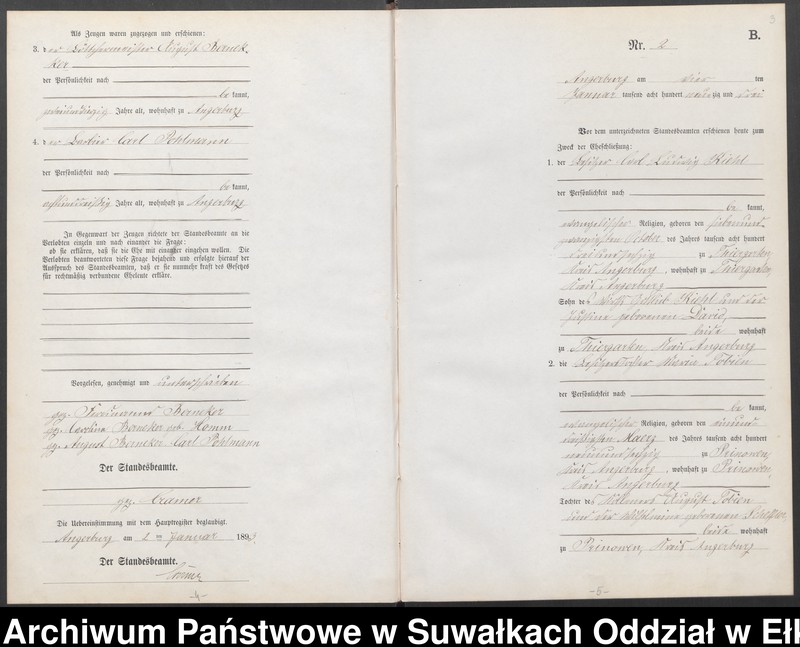 Als Zeugen waren zugezogen und erschienen:
3. der Böttchermeister August Bernek-
ker
der Persönlichkeit nach
be kannt,
Jahre alt, wohnhaft zu Angerburg
4. der Barbier Carl Pohlmann
der Persönlichkeit nach
be kannt,
Jahre alt, wohnhaft zu Angerburg
In Gegenwart der Zeugen richtete der Standesbeamte an die
Verlobten einzeln und nach einander die Frage:
ob sie erklären, daß sie die Ehe mit einander eingehen wollen. Die
Verlobten beantworteten diese Frage bejahend und erfolgte hierauf der
Ausspruch des Standesbeamten, daß er sie nunmehr kraft des Gesetzes
für rechtmäßig verbundene Eheleute erkläre.
Vorgelesen, genehmigt und unterschrieben
gez. Ferdinand Berneker
gez. Carolina Berneker geb. Homm
gez. August Berneker Carl Pohlmann
Der Standesbeamte.
gez. Cramer
Die Uebereinstimmung mit dem Hauptregister beglaubigt.
Angerburg am 2ten Januar 1893
Der Standesbeamte.
-4-
3
B.
Nr. 2
Angerburg am vier ten
Januar tausend acht hundert neunzig und drei
Vor dem unterzeichneten Standesbeamten erschienen heute zum
Zweck der Eheschließung:
1. der Besitzer Carl Ludwig Kiehl
der Persönlichkeit nach
be kannt,
evangelischer Religion, geboren den siebenund-
zwanzigsten Oktober des Jahres tausend acht hundert
zu Thiergarten
Kreis Angerburg, wohnhaft zu Thiergarten
Kreis Angerburg
Sohn des Gottlieb Kiehl und der
Justine geborenen David,
beide wohnhaft
zu Thiergarten, Kreis Angerburg
2. die Besitzertochter Maria Tobien
der Persönlichkeit nach
be kannt,
evangelischer Religion, geboren den einund-
dreißigsten Maerz des Jahres tausend acht hundert
neunundsechzig zu Prinowen,
Kreis Angerburg, wohnhaft zu Prinowen,
Kreis Angerburg
Tochter des August Tobien
und der Wilhelmine geborenen
beide wohnhaft
zu Prinowen, Kreis Angerburg
-5-
Archiwum Państwowe w Suwałkach Oddział w Ełk